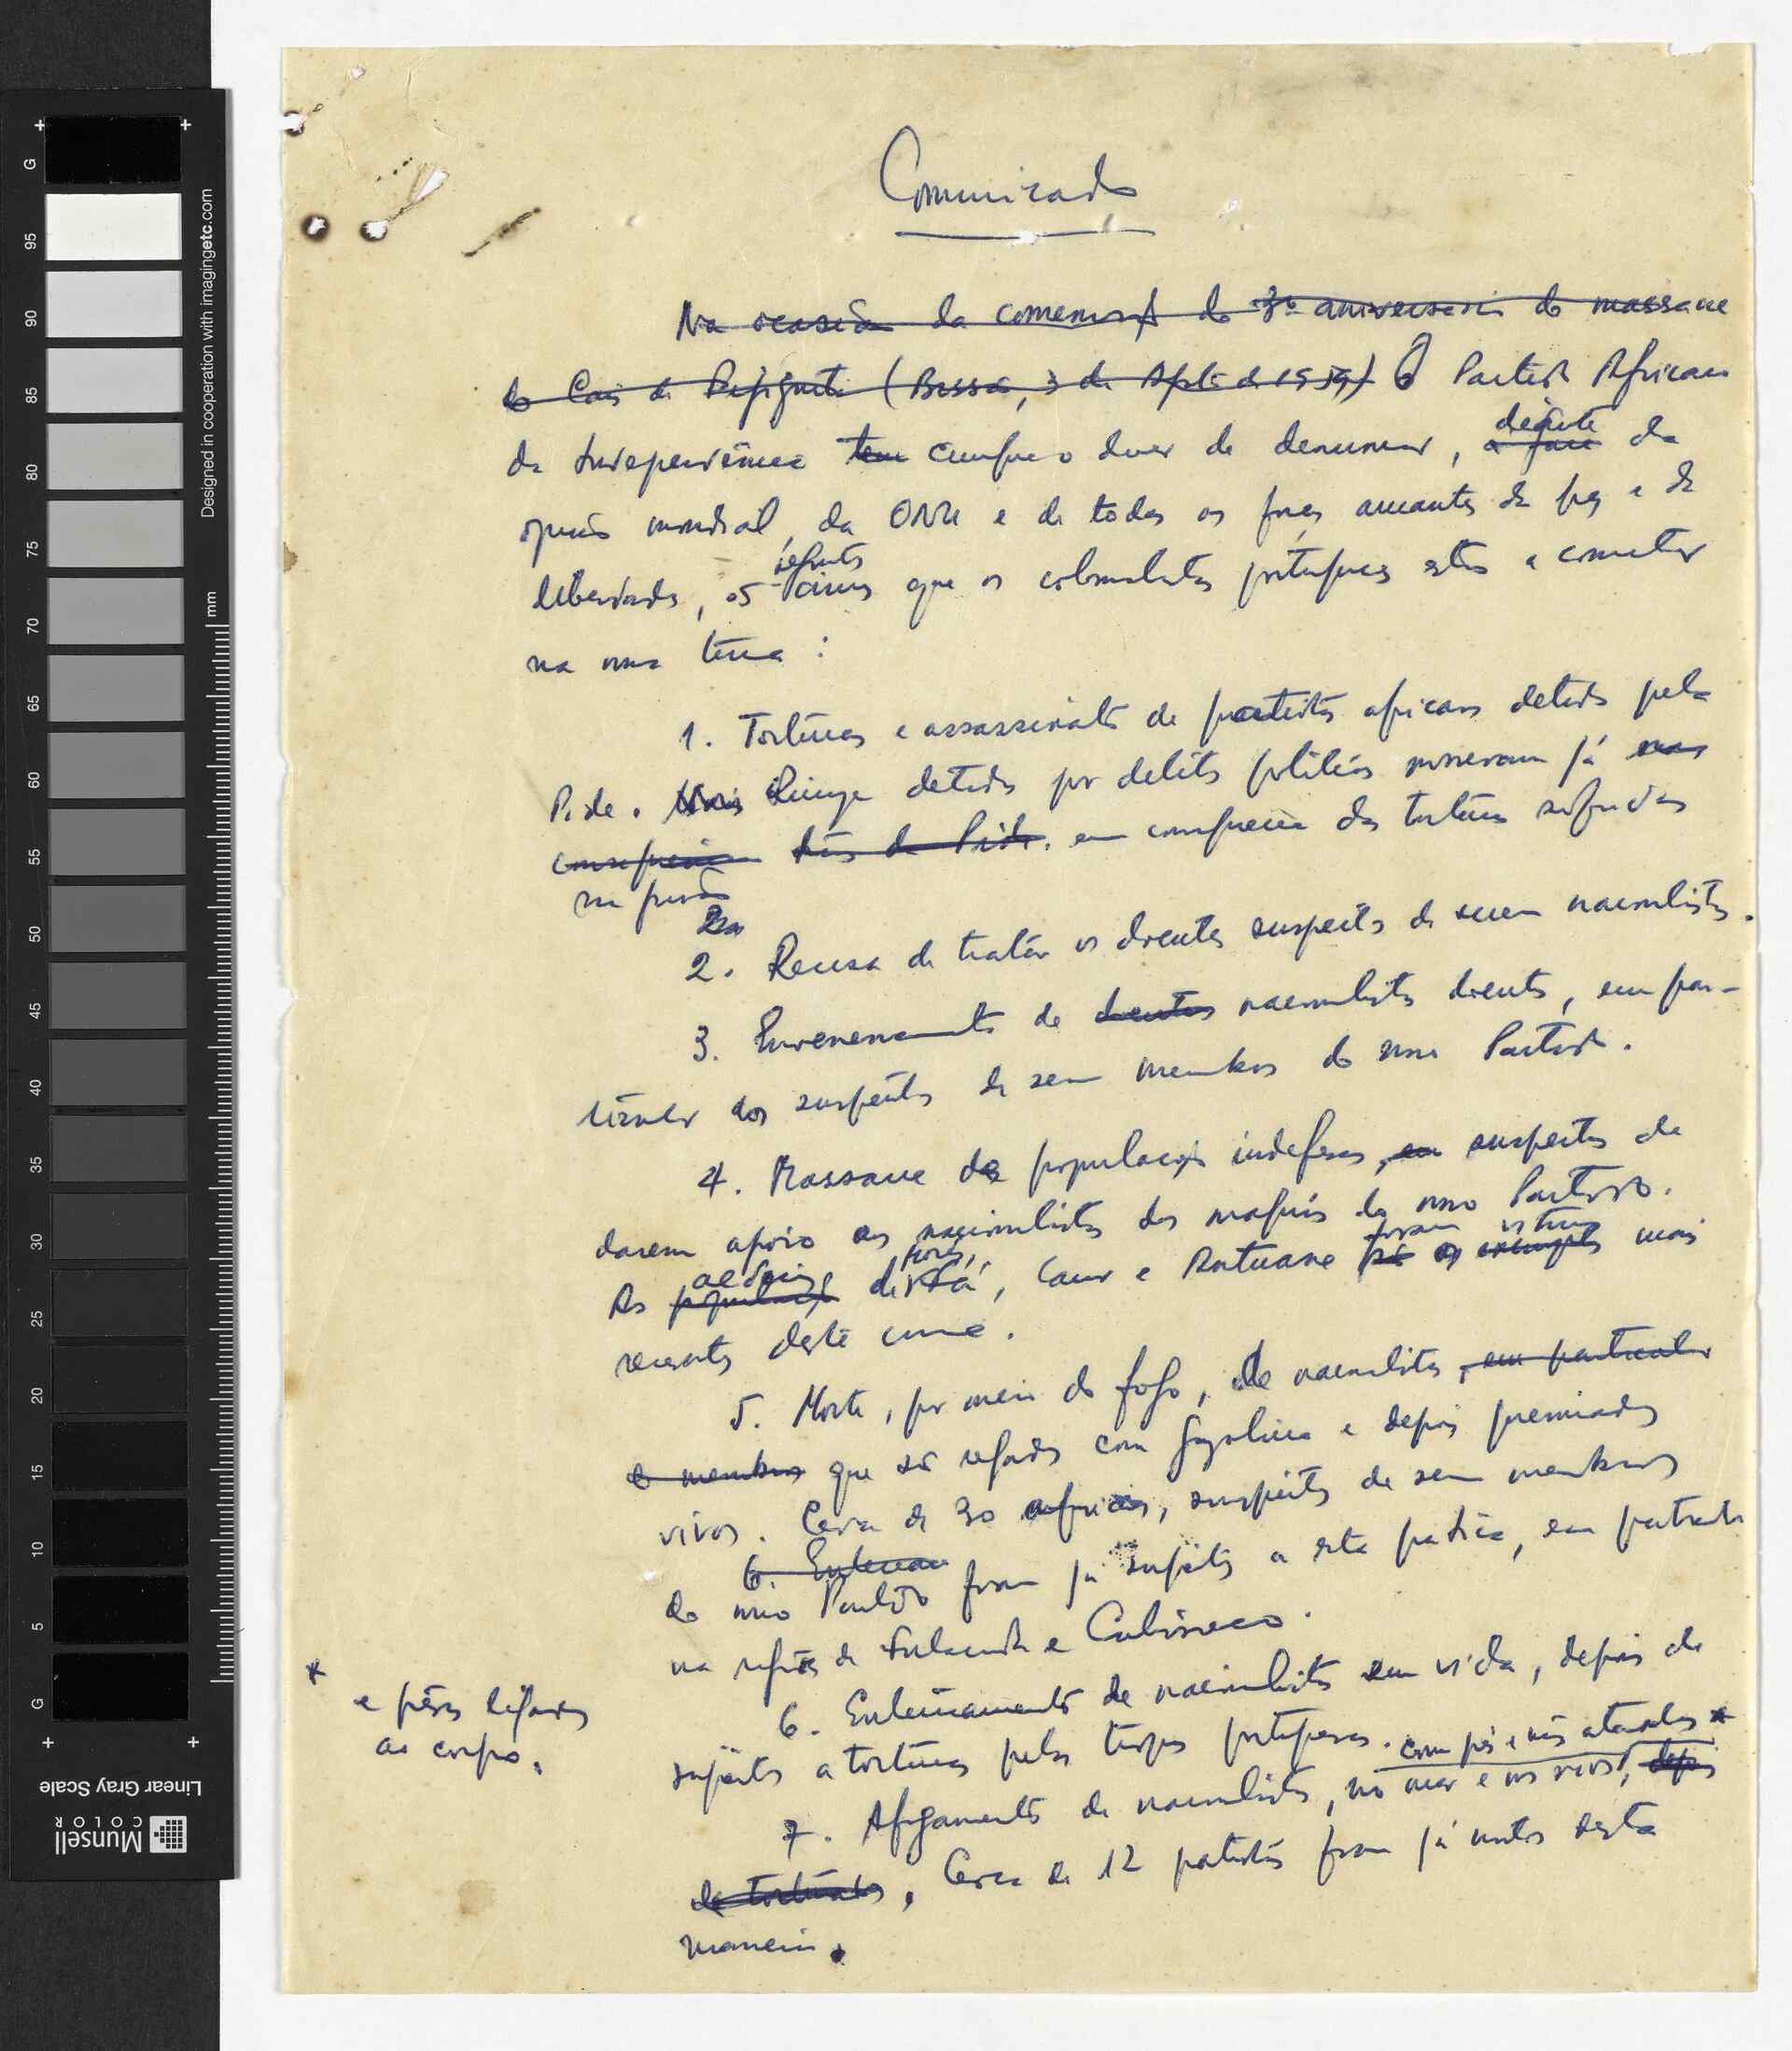 Comunicado
Na ocasião da comemoraç do 3º aniversário do massacre
do Cais de Pijiguiti (Bissau, 3 de Agôsto de 1959) O Partido Africano
da Independência tem cumpre o dever de denunciar, a face da
diante
opinião mundial, da ONU e de todas as forças amantes da paz e da
seguintes
liberdade, os crimes que os colonialistas portugueses estão a cometer
na nossa terra :
1. Torturas e assassinato de patriotas africanos detidos pela
Pide. detidos por delitos políticos morreram já
consequência da Pide. em consequência das torturas sofridas
na prisão
2. Recusa de tratar os doentes suspeitos de serem nacionalistas.
3. Envenenamento de doentes nacionalistas doentes, em par-
ticular dos suspeitos de serem membros do nosso Partido.
4. Massacre das populações indefesas, suspeitas de
darem apoio aos nacionalistas dos maquis do nosso Partido.
foram vítimas
aldeias
As populações de , Caur e Antuane são os exemplos mais
recentes deste crime.
5. Morte, por meio do fogo, de nacionalistas, em particular
membros que são regados com gazolina e depois queimados
vivos. Cerca de 30 africanos, suspeitos de serem membros
6. Enterram
do nosso Partido foram já sujeitos a esta prática, em particular
na região de Fulacunda e Cubisseco.
6. Enterramento de nacionalistas em vida, depois de
sujeitos a torturas pelas tropas portuguesas.
com pés e mãos atados *
7. Afogamento de nacionalistas, no mar e nos rios, depois
de torturados, Cerca de 12 patriotas foram já mortos desta
maneira.
*
e pêsos ligados
ao corpo.
G
95
90
85
80
75
70
65
60
55
50
45
40
35
30
25
20
15
10
5
G
mm
Designed in cooperation with imagingetc.com
Linear Gray Scale
Munsell
COLOR